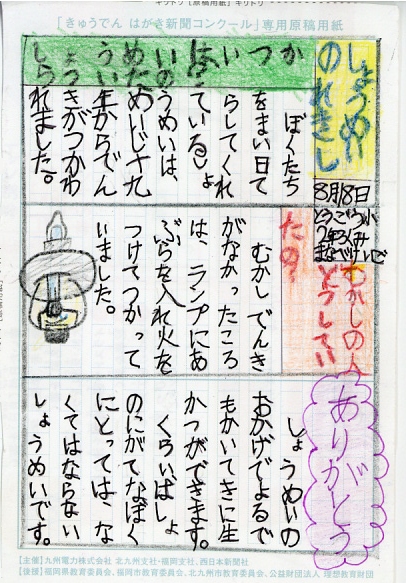 キリトリ【原稿用紙】キリトリ
「きゅうでん はがき新聞コンクール」専用原稿用紙
しょうめい
のれきし
8月18日
しょうめいはいつか
らついたの
ぼくたち
をまい日て
らしてくれ
ているしょ
うめいは、
めいじ十九
年からでん
きがつかわ
れました。
むかしの人
どうしてい
たの
むかしでんき
がなかったころ
は、ランプにあ
ぶらを入れ火を
つけてつかって
いました。
ありがとう
しょうめいの
おかげでよるで
もかいてきに生
かつができます。
くらいばしょ
のにがてなぼく
にとっては、な
くてはならない
しょうめいです。
【主催】九州電力株式会社 北九州支社・福岡支社、西日本新聞社
【後援】福岡県教育委員会、福岡市教育委員会、北九州市教育委員会、公益財団法人 理想教育財団